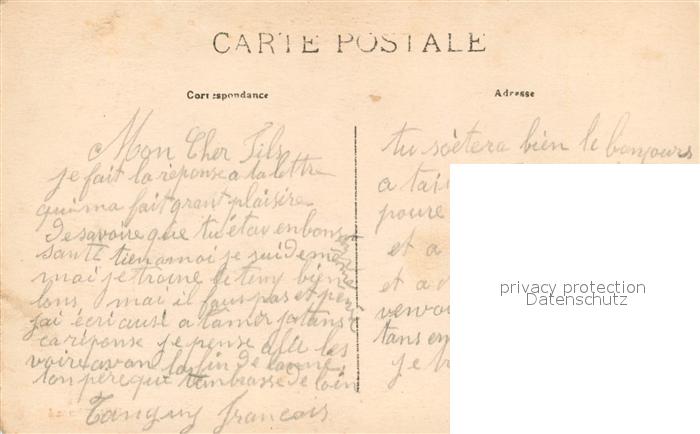 CARTE POSTALE
Correspondance
Adresse
Mon Cher Fils
je fait la réponse a ta lettre
qui ma fait grant plaisire
De savoire que tu étav en bonne
santé tien a moi je sui De même
mai je trouve le temp bien
lons mai il faus pas et
jai écri ausi a ta mér jatans
ca réponse je pense alle les
voire avan la fin de lanné
ton père qui tembrasse De loin
Tanguy francois
tu soètera bien le bonjours
a tai
poure
et a
et a
venvoi
tans en
je
privacy protection
Datenschutz